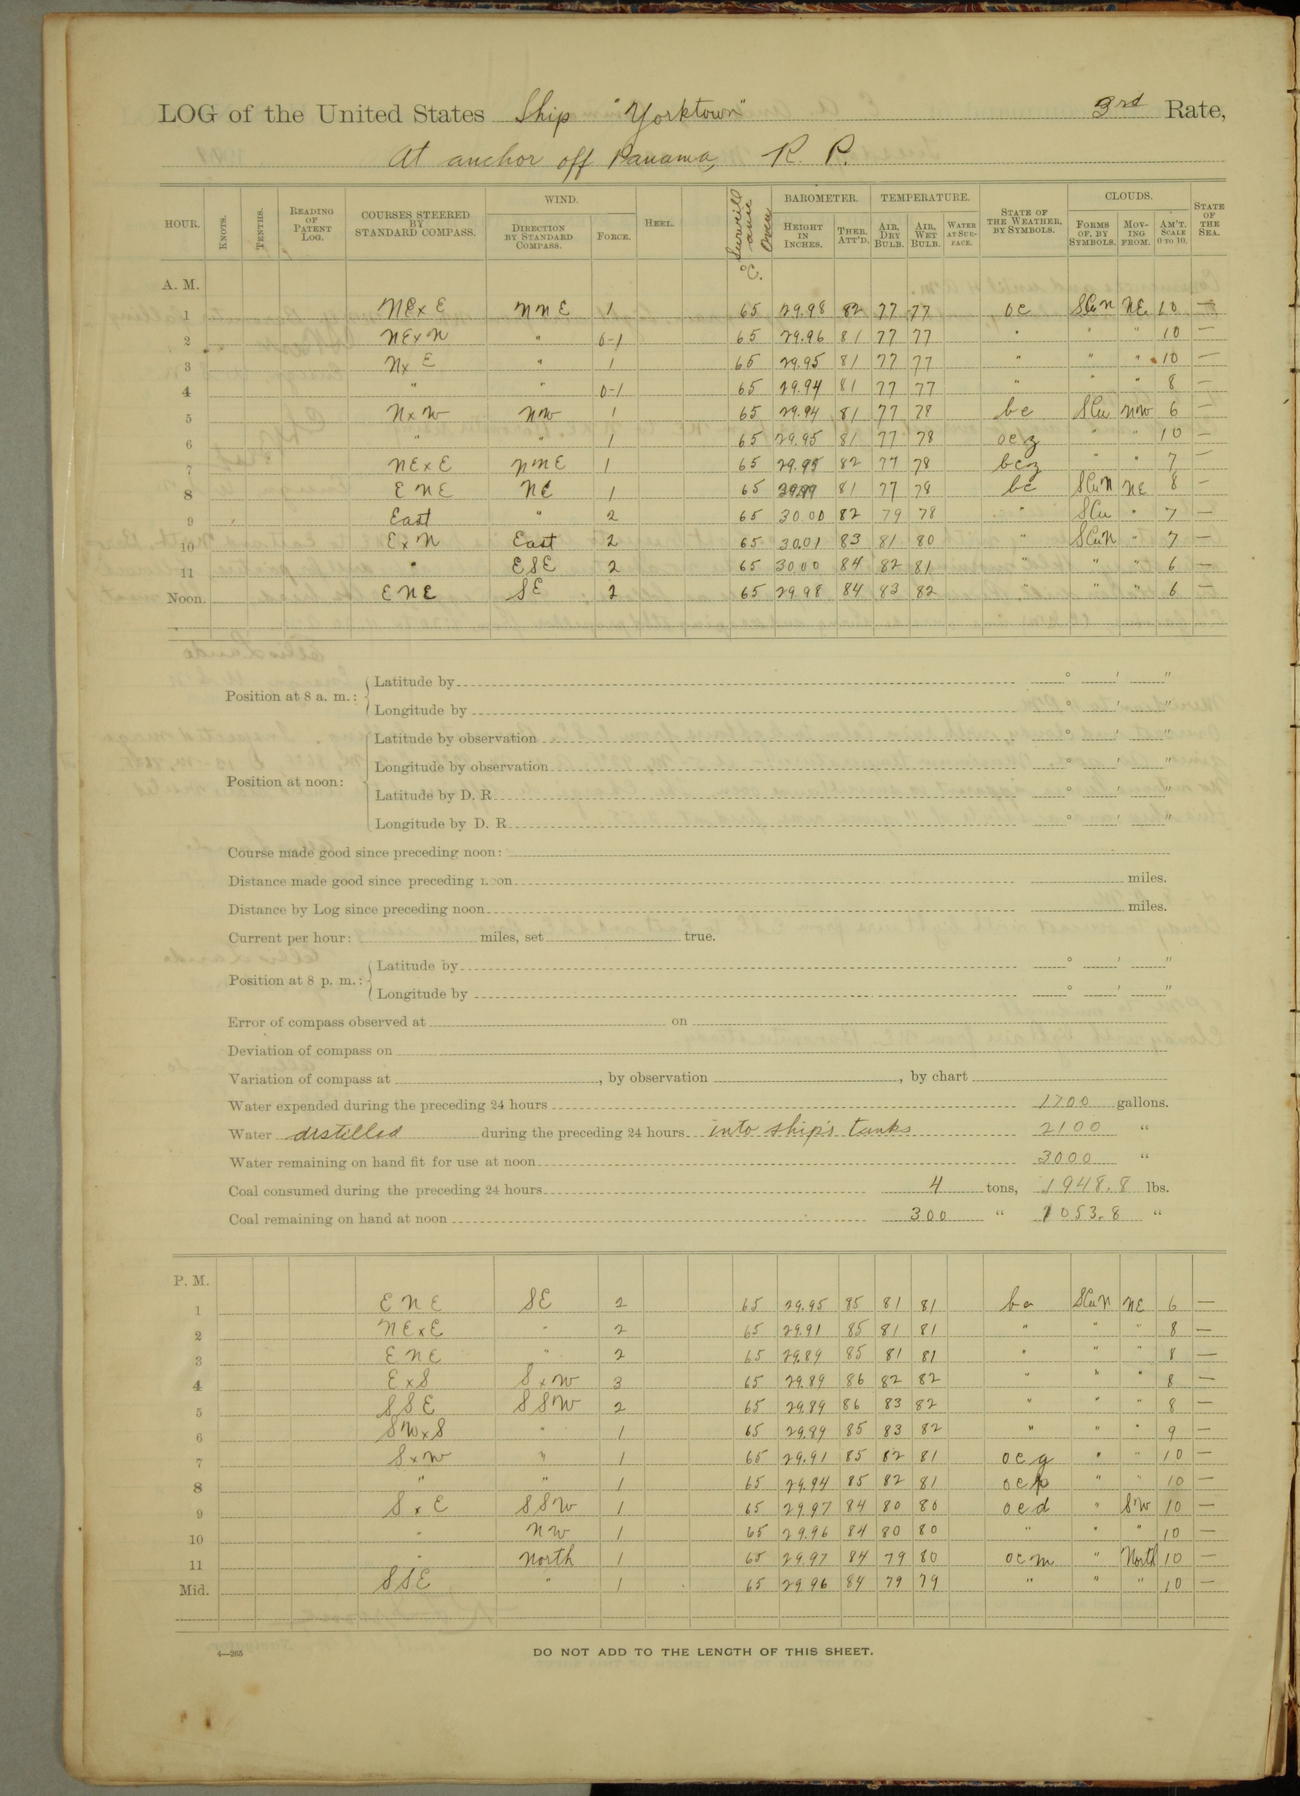 LOG of the United States Ship "Yorktown" 3rd Rate,
At anchor off Panama, R. P.
HOUR. KNOTS. TENTHS. READING OF PATENT LOG. COURSES STEERED BY STANDARD COMPASS. WIND. DIRECTION BY STANDARD COMPASS. FORCE. HEEL. °C. BAROMETER. HEIGHT IN INCHES. THER. ATT'D. TEMPERATURE. AIR, DRY BULB. AIR, WET BULB. WATER AT SURFACE. STATE OF THE WEATHER, BY SYMBOLS. CLOUDS. FORMS OF, BY SYMBOLS. MOVING FROM. AM'T. SCALE 0 TO 10. STATE OF THE SEA.
A. M.
1 NExE NNE 1 65 29.98 82 77 77 oc SCuN NE 10 —
2 NExN " 0-1 65 29.96 81 77 77 " " " 10 —
3 NxE " 1 65 29.95 81 77 77 " " " 10 —
4 " " 0-1 65 29.94 81 77 77 " " " 8 —
5 NxW NW 1 65 29.94 81 77 78 bc SCu NW 6 —
6 " " 1 65 29.95 81 77 78 ocz " " 10 —
7 NExE NNE 1 65 29.95 82 77 78 bcz " " 7 —
8 ENE NE 1 65 81 77 78 bc SCuN NE 8 —
9 East " 2 65 30.00 82 79 78 " SCu " 7 —
10 ExN East 2 65 30.01 83 81 80 " SCuN " 7 —
11 " ESE 2 65 30.00 84 82 81 " " " 6 —
Noon. ENE SE 2 65 29.98 84 83 82 " " " 6 —
Position at 8 a. m.: Latitude by ° ' "
Longitude by ° ' "
Position at noon: Latitude by observation ° ' "
Longitude by observation ° ' "
Latitude by D. R. ° ' "
Longitude by D. R. ° ' "
Course made good since preceding noon:
Distance made good since preceding noon miles.
Distance by Log since preceding noon miles.
Current per hour: miles, set true.
Position at 8 p. m.: Latitude by ° ' "
Longitude by ° ' "
Error of compass observed at on
Deviation of compass on
Variation of compass at , by observation , by chart
Water expended during the preceding 24 hours 1700 gallons.
Water distilled during the preceding 24 hours into ship's tanks 2100 "
Water remaining on hand fit for use at noon 3000 "
Coal consumed during the preceding 24 hours 4 tons, 1948.8 lbs.
Coal remaining on hand at noon 300 " 1053.8 "
P. M.
1 ENE SE 2 65 29.95 85 81 81 bc SCuN NE 6 —
2 NExE " 2 65 29.91 85 81 81 " " " 8 —
3 ENE " 2 65 29.89 85 81 81 " " " 8 —
4 ExS SxW 3 65 29.89 86 82 82 " " " 8 —
5 SSE SSW 2 65 29.89 86 83 82 " " " 8 —
6 SWxS " 1 65 29.89 85 83 82 " " " 9 —
7 SxW " 1 65 29.91 85 82 81 ocq " " 10 —
8 " " 1 65 29.94 85 82 81 ocp " " 10 —
9 SxE SSW 1 65 29.97 84 80 80 ocd " SW 10 —
10 " NW 1 65 29.96 84 80 80 " " " 10 —
11 " North 1 65 29.97 84 79 80 ocm " North 10 —
Mid. SSE " 1 65 29.96 84 79 79 " " " 10 —
4—265
DO NOT ADD TO THE LENGTH OF THIS SHEET.